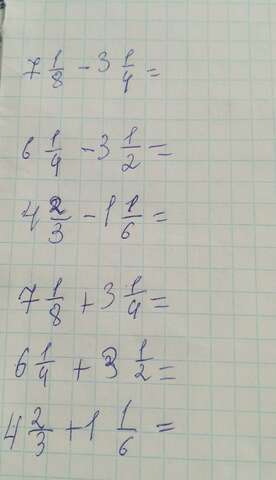 7 1/8 - 3 1/4 =
6 1/4 - 3 1/2 =
4 2/3 - 1 1/6 =
7 1/8 + 3 1/4 =
6 1/4 + 3 1/2 =
4 2/3 + 1 1/6 =